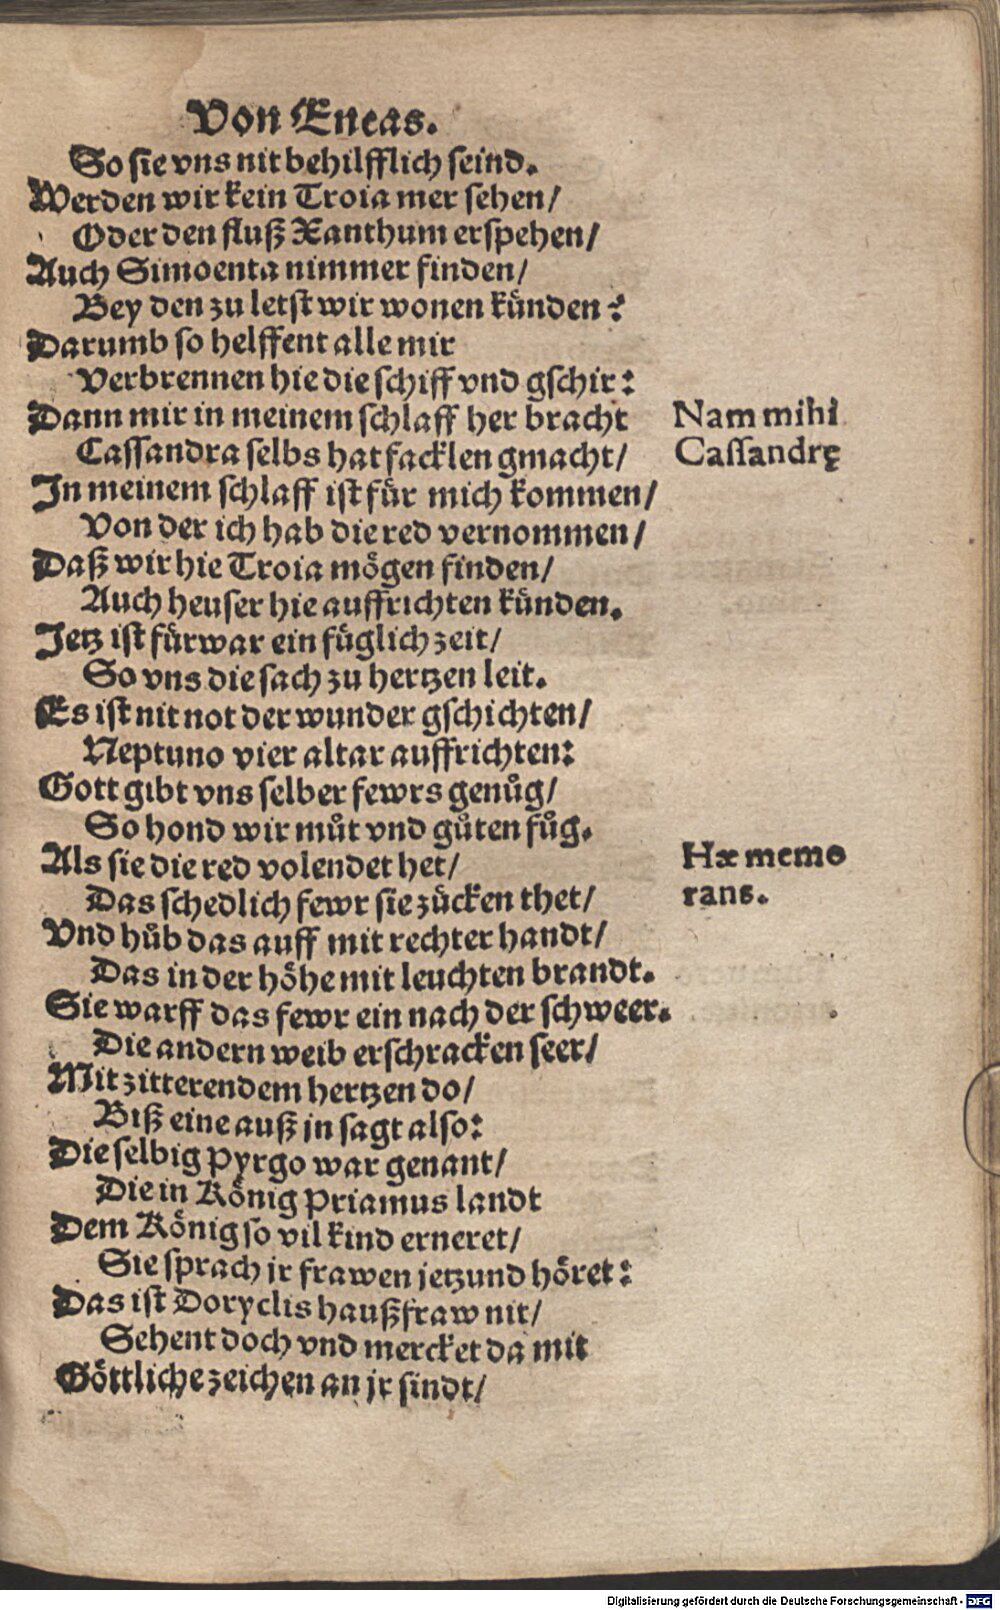 Von Eneas.
So sie vns nit behilfflich seind.
Werden wir kein Troia mer sehen/
Oder den fluß Xanthum erspehen/
Auch Simoenta nimmer finden/
Bey den zu letst wir wonen künden?
Darumb so helffent alle mir
Verbrennen hie die schiff vnd gschir:
Dann mir in meinem schlaff her bracht
Cassandra selbs hat facklen gmacht/
In meinem schlaff ist für mich kommen/
Von der ich hab die red vernommen/
Daß wir hie Troia mögen finden/
Auch heuser hie auffrichten künden.
Jetz ist fürwar ein füglich zeit/
So vns die sach zu hertzen leit.
Es ist nit not der wunder gschichten/
Neptuno vier altar auffrichten:
Gott gibt vns selber fewrs genůg/
So hond wir můt vnd gůten fůg.
Als sie die red volendet het/
Das schedlich fewr sie zücken thet/
Vnd hůb das auff mit rechter handt/
Das in der höhe mit leuchten brandt.
Sie warff das fewr ein nach der schweer.
Die andern weib erschracken seer/
Mit zitterendem hertzen do/
Biß eine auß jn sagt also:
Die selbig Pyrgo war genant/
Die in König Priamus landt
Dem König so vil kind erneret/
Sie sprach jr frawen jetzund höret:
Das ist Doryclis haußfraw nit/
Sehent doch vnd mercket da mit
Göttliche zeichen an jr sindt/
Nam mihi
Cassandrę
Hæ memo
rans.
Digitalisierung gefördert durch die Deutsche Forschungsgemeinschaft - DFG